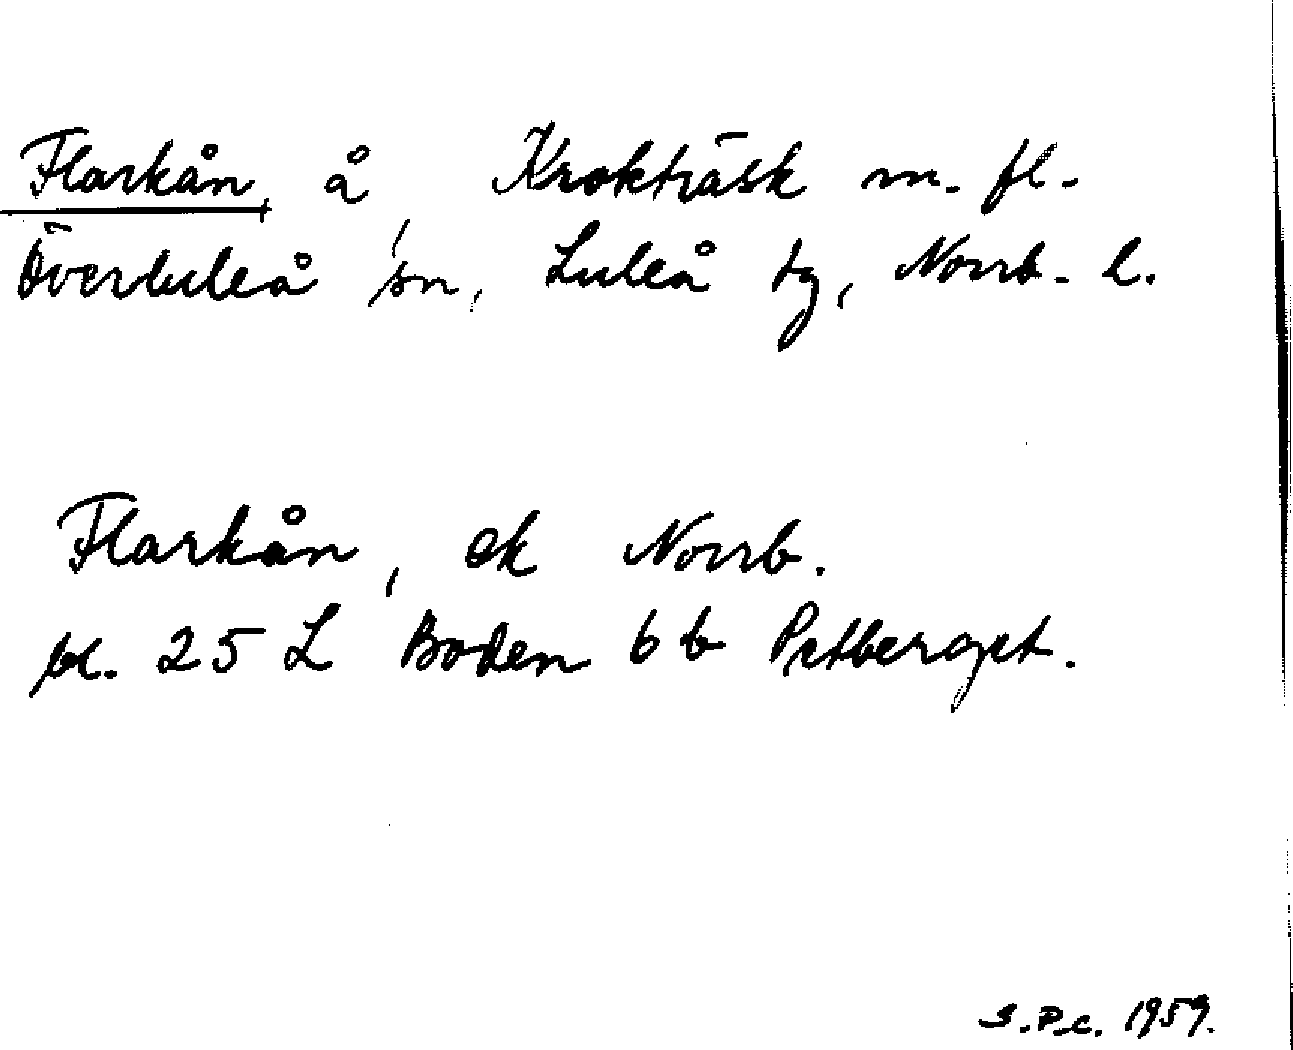 Flarkån, å, Krokträsk m. fl.
Överluleå sn, Luleå tg, Norrb. l.
Flarkån, ek Norrb.
bl. 25 L Boden 6 b Petberget.
S.P.c. 1959.